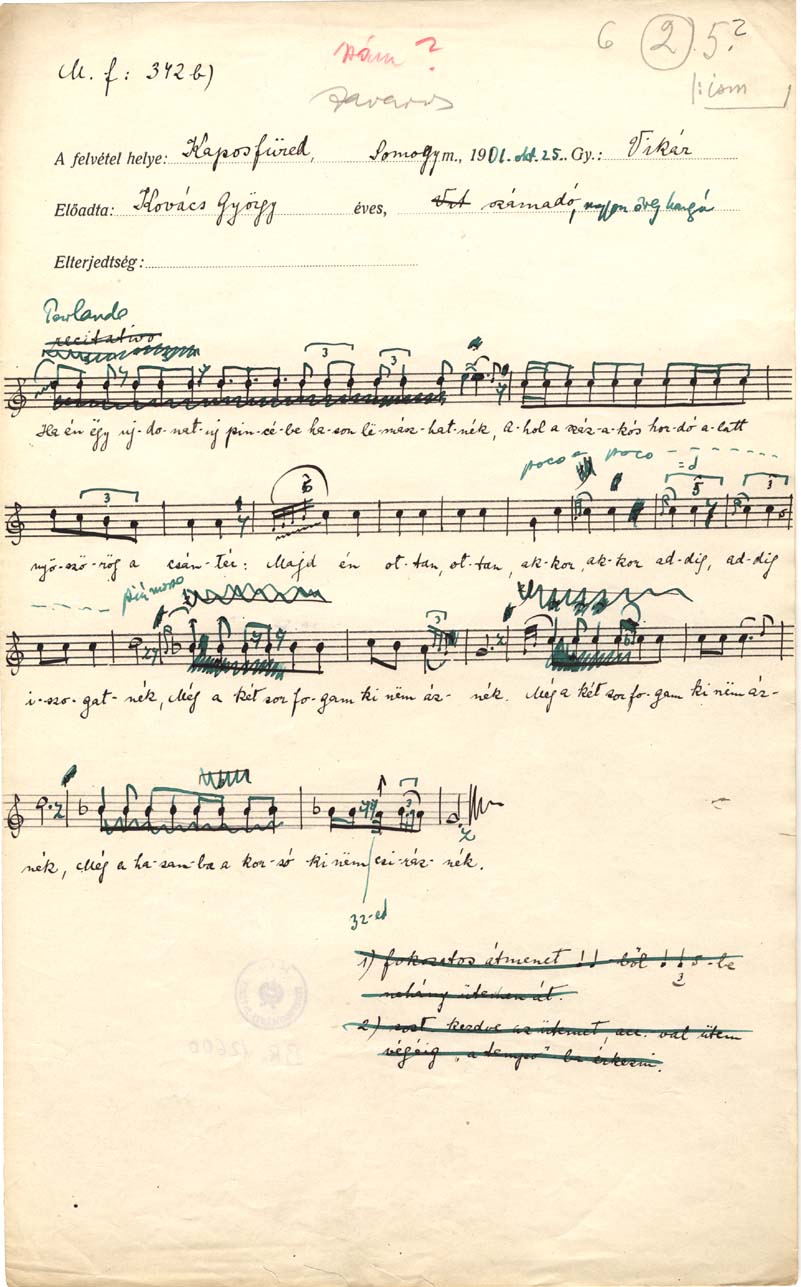 6 (2). 5?
szám?
M. f: 342 b)
zavaros
|: ism
A felvétel helye: Kaposfüred, Somogy m., 1901. okt. 25. Gy.: Vikár
Előadta: Kovács György éves, számadó, nagyon öreg hangú
Elterjedtség:
Parlando
recitativo
3 3
Ha én ëgy uj-do-nat-uj pin-cé-be ha-son lë-mász-hat-nék, A-hol a száz-a-kós hor-dó a-latt
poco a poco
3 6 3 3
nyö-ször-rög a csán-tér: Majd én ot-tan, ot-tan, ak-kor, ak-kor ad-dig, ad-dig
più mosso
3
i-szo-gat-nék, Míg a két sor fo-gam ki nëm áz-nék. Míg a két sor fo-gam ki nëm áz-
3
nék, Míg a ha-sam-ba a kor-só ki nëm csi-ráz-nék.
32-ed
1) fokozatos átmenet -ből -be
néhány ütemen át.
2) kezdve az ütemet, acc. val ütem
végéig „a tempo" ba érkezni.